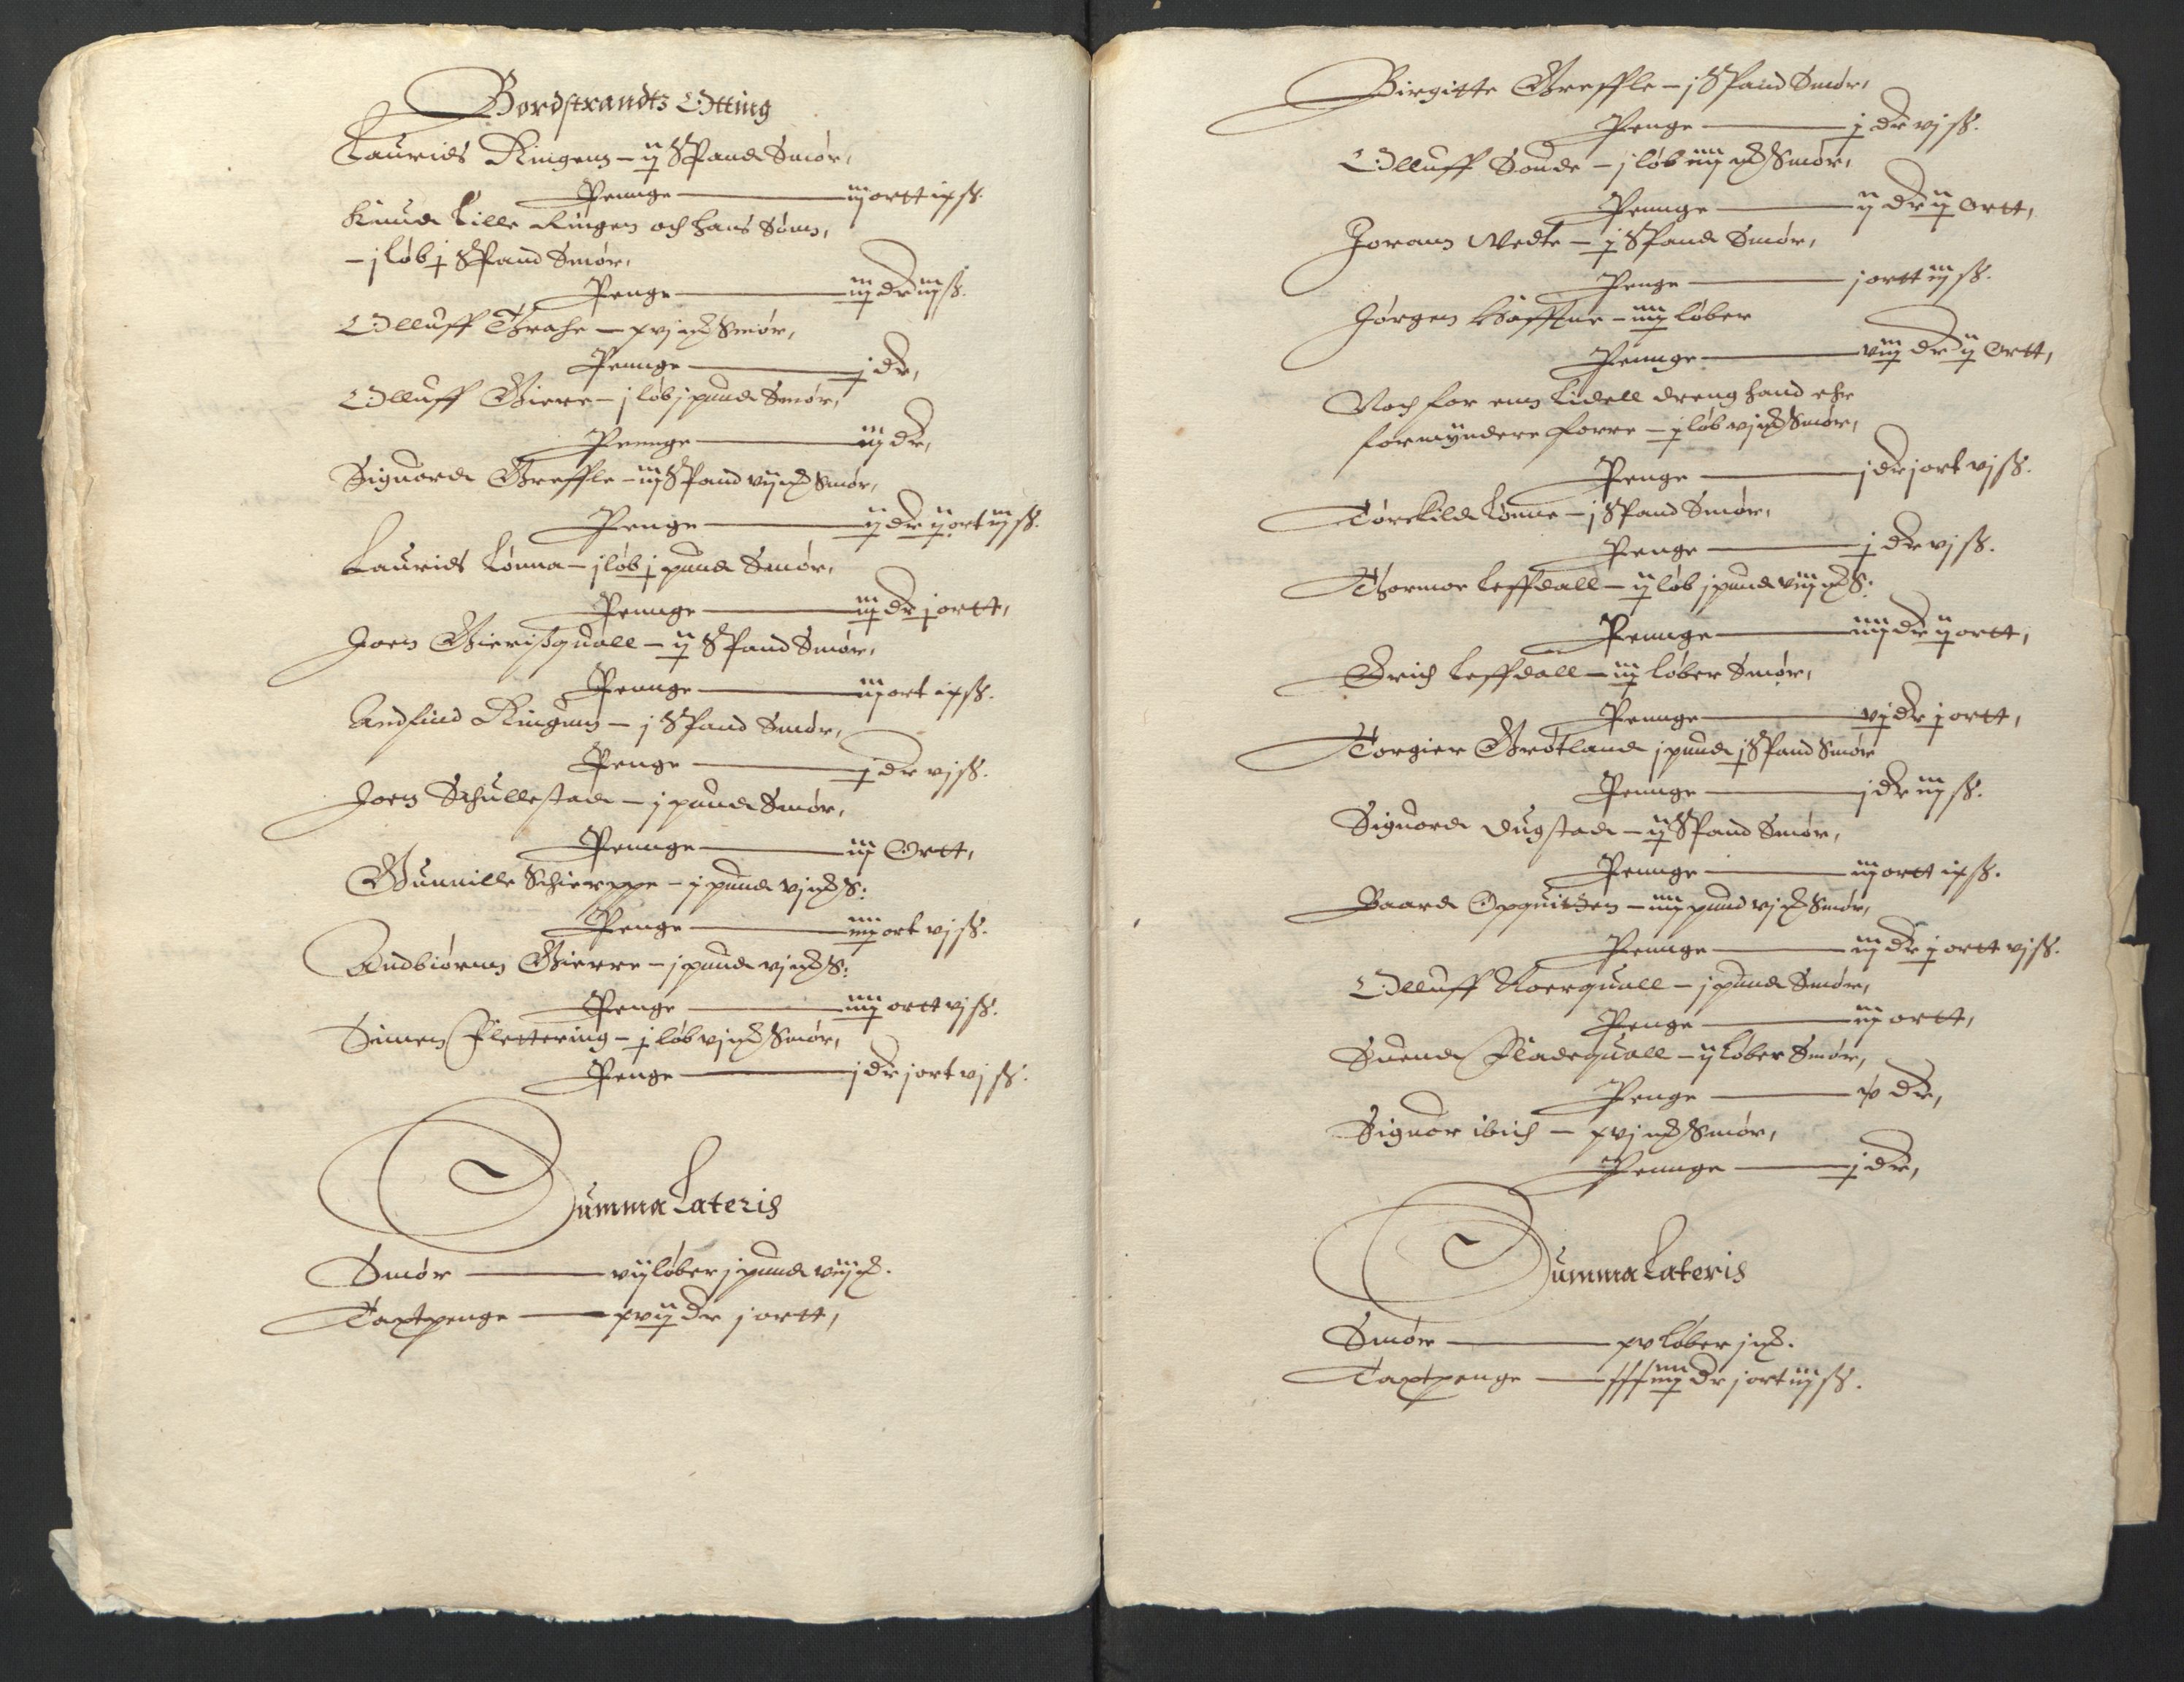 Bordstrandtz Otting
Laurids Ringenn – ij Spand Smør,
Penge — iij ortt ix ß.
Knud Lille Ringen och hans Sønn,
– j løb j Spand Smør,
Penge — iij dr iij ß.
Olluff Brahe – xvj mk Smør,
Penge — j dr,
Olluff Gierre – j løb j pund Smør,
Penge — iij dr,
Siguord Greffle – iij Spand vij mk Smør,
Penge — ij dr ij ort iij ß.
Laurids Lønna – j løb j pund Smør,
Penge — iij dr j ortt,
Joen Gierisquall – ij Spand Smør,
Penge — iij ort ix ß.
Andfind Ringenn – j Spand Smør,
Penge — j dr vj ß.
Joen Schullestad – j pund Smør,
Penge — iij Ortt,
Gunnille Schierppe – j pund vj mk S:
Penge — iiij ort vj ß.
Andbiørnn Gierre – j pund vj mk S:
Penge — iiij ortt vj ß.
Simen Flettering – j løb vj mk Smør,
Penge — j dr j ort vj ß.
Summa Lateris
Smør — vij løber j pund viij mk.
Taxtpenge — xvij dr j ortt,
Birgitte Greffle – j Spand Smør,
Penge — j dr vj ß.
Olluff Sonde – j løb iiij mk Smør,
Penge — ij dr ij Ortt,
Joran Wedte – j Spand Smør,
Penge — j ortt iij ß.
Jørgen HaffTne – iiij løber
Penge — viij dr ij Ortt,
Noch for enn Lidell dreng hand ehr
formyndere forre – j løb vj mk Smør,
Penge — j dr j ort vj ß.
Tørckild Lønne – j Spand Smør,
Penge — j dr vj ß.
Thormor Leffdall – ij løb j pund viij mk S:
Penge — iiij dr ij ortt,
Erich Leffdall – iij løber Smør,
Penge — vj dr j ortt,
Torgier Grøtland j pund j Spand Smør
Penge — j dr iij ß.
Siguord Dugstad – ij Spand Smør,
Penge — iij ortt ix ß.
Baard Opquitzen – iiij pund vj mk Smør,
Penge — iij dr j ortt vj ß.
Olluff Roerquall – j pund Smør,
Penge — iij ortt,
Suend Fladequall – ij løber Smør,
Penge — v dr,
Siguor ibich – xvj mk Smør,
Penge — j dr,
Summa Lateris
Smør — xv løber j mk.
Taxtpenge — xxxiiij dr j ort iij ß.